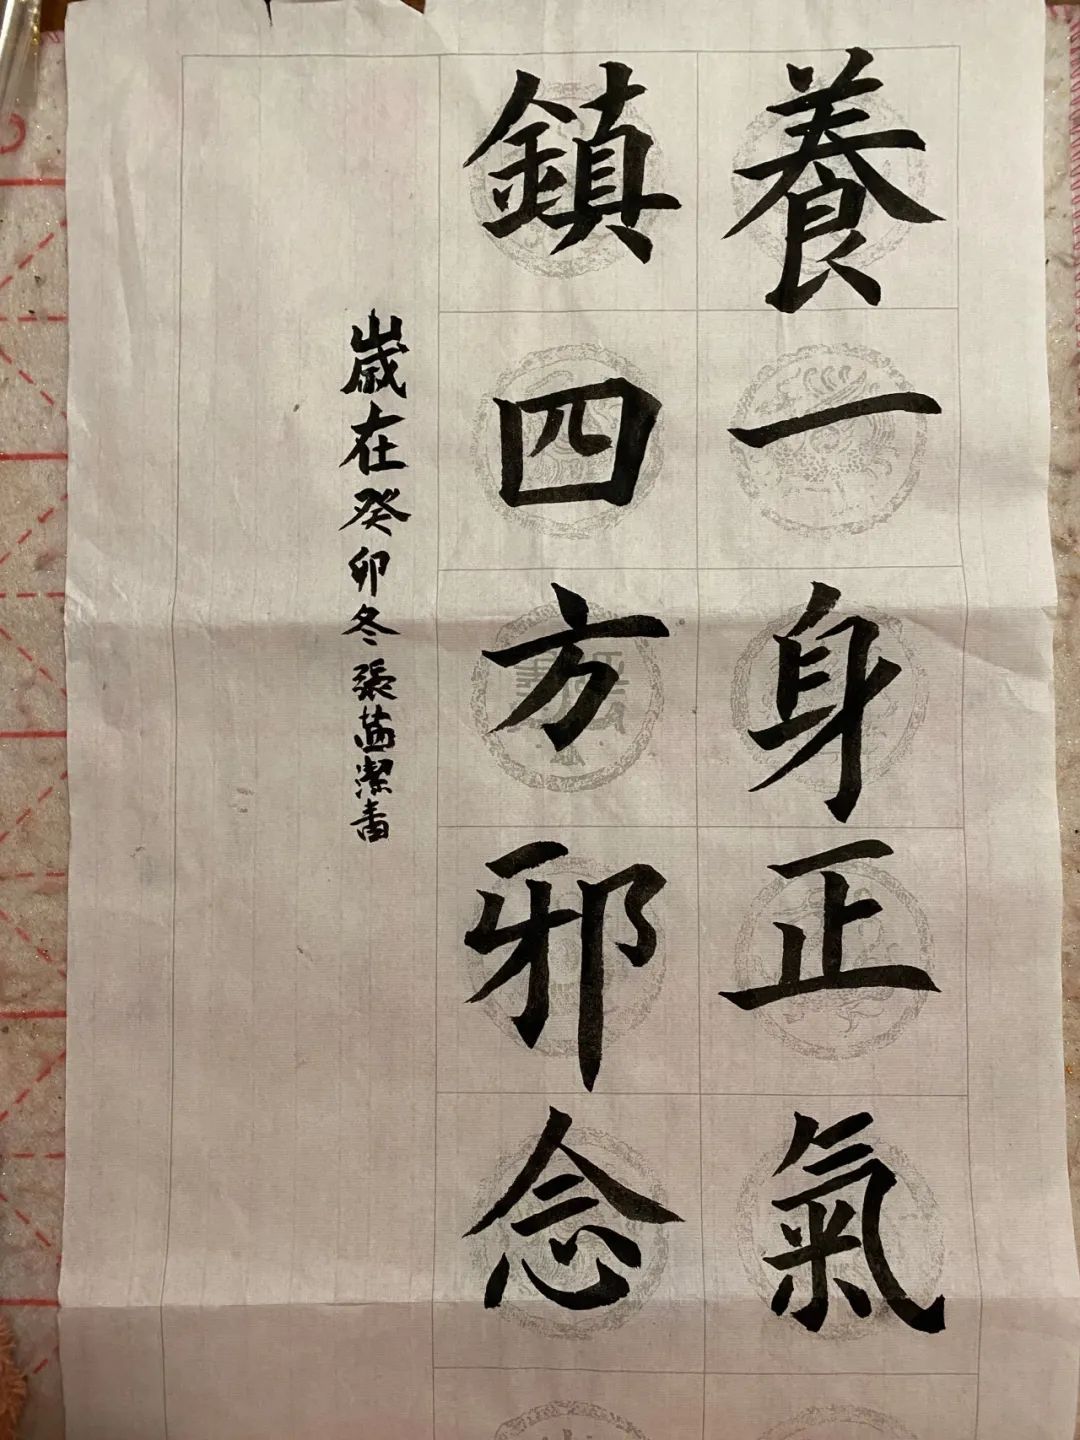 養一身正氣
鎮四方邪念
歲在癸卯冬張茜潔書